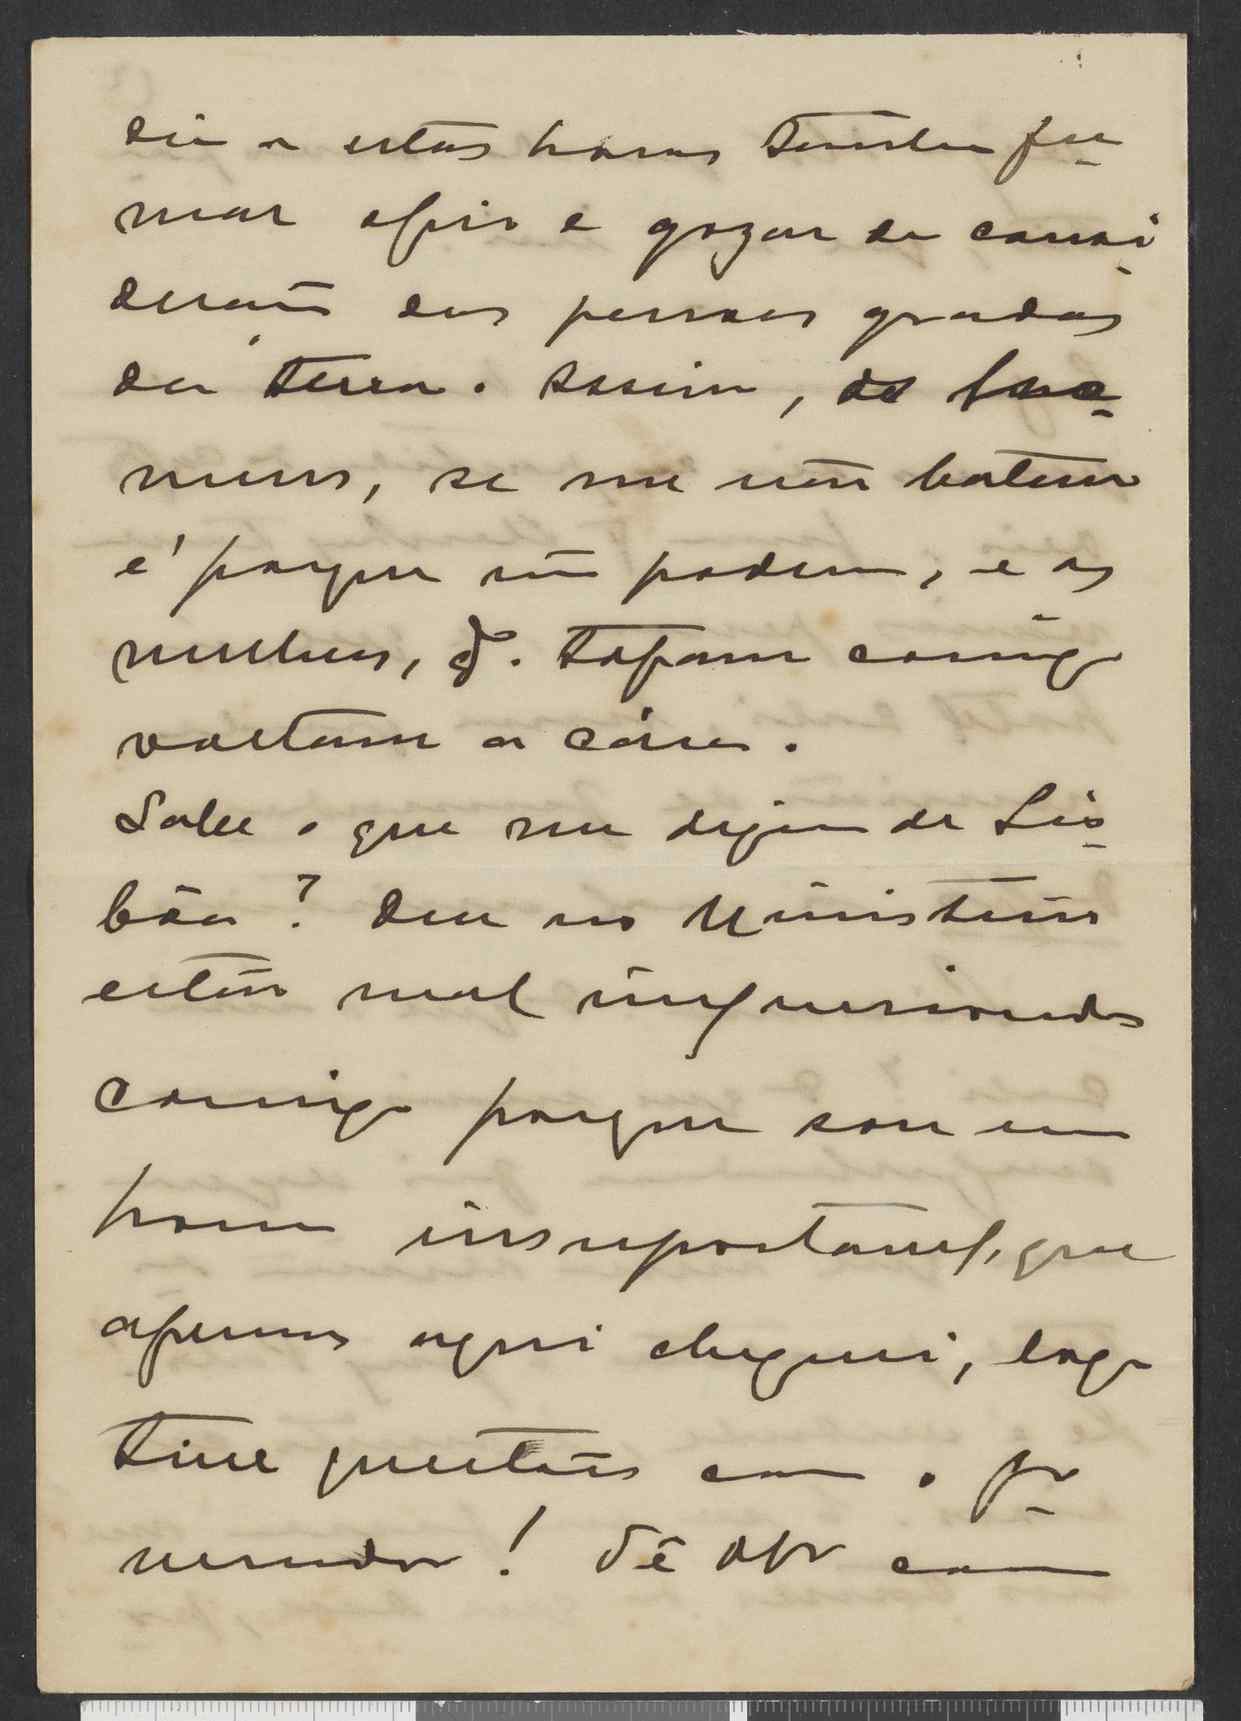 dia a estas horas tenho fu-
mar opio e gozar da consi-
deração das pessoas gradas
da terra. Assim, os ho-
mens, se me não batem
é porque não podem, e as
mulheres, se topam comigo
voltam a cára.
Sabe o que me dizem de Lis-
bôa? Que no Ministerio
estão mal impressionados
comigo porque sou um
homem insuportavel, que
apenas aqui cheguei, logo
tive questões com o go-
vernador! Vê